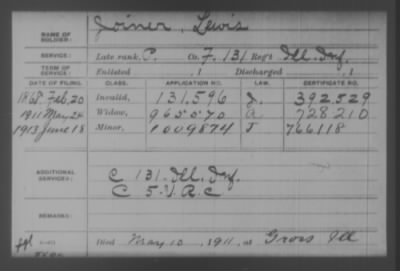 NAME OF SOLDIER: Joiner, Lewis
SERVICE: Late rank, P. Co. F, 131 Reg't Ill. Inf.
TERM OF SERVICE: Enlisted , 1 Discharged , 1
DATE OF FILING. CLASS. APPLICATION NO. LAW. CERTIFICATE NO.
1868 Feb. 20 Invalid, 131.596 392.529
1911 May 24 Widow, 965570 a 728210
1913 June 18 Minor, 1009874 J 766118
ADDITIONAL SERVICES: C 131. Ill. Inf.
C 5-V.R.C
REMARKS:
Died May 10, 1911, at Gross Ill